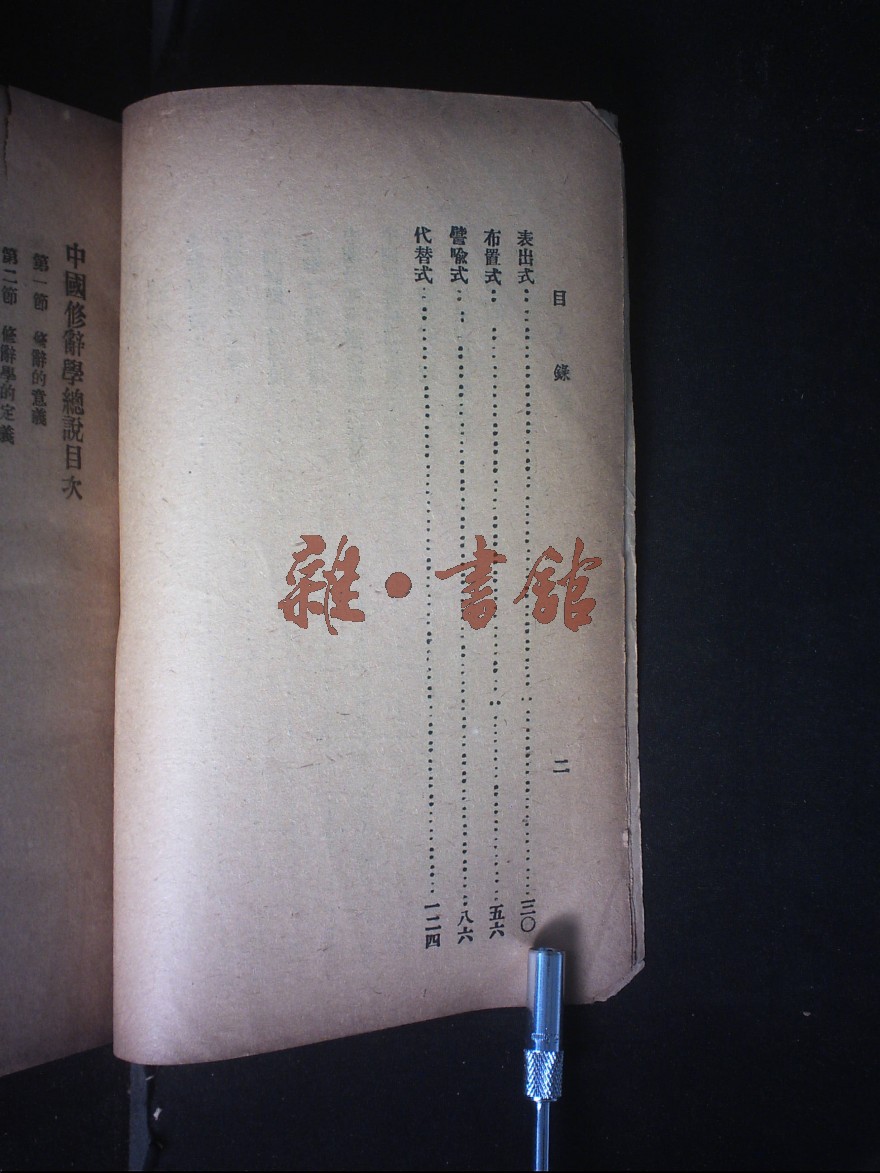 目錄 二
表出式 三〇
布置式 五六
譬喩式 八六
代替式 一二四
中國修辭學總說目次
第一節 修辭的意義
第二節 修辭學的定義
雜·書館